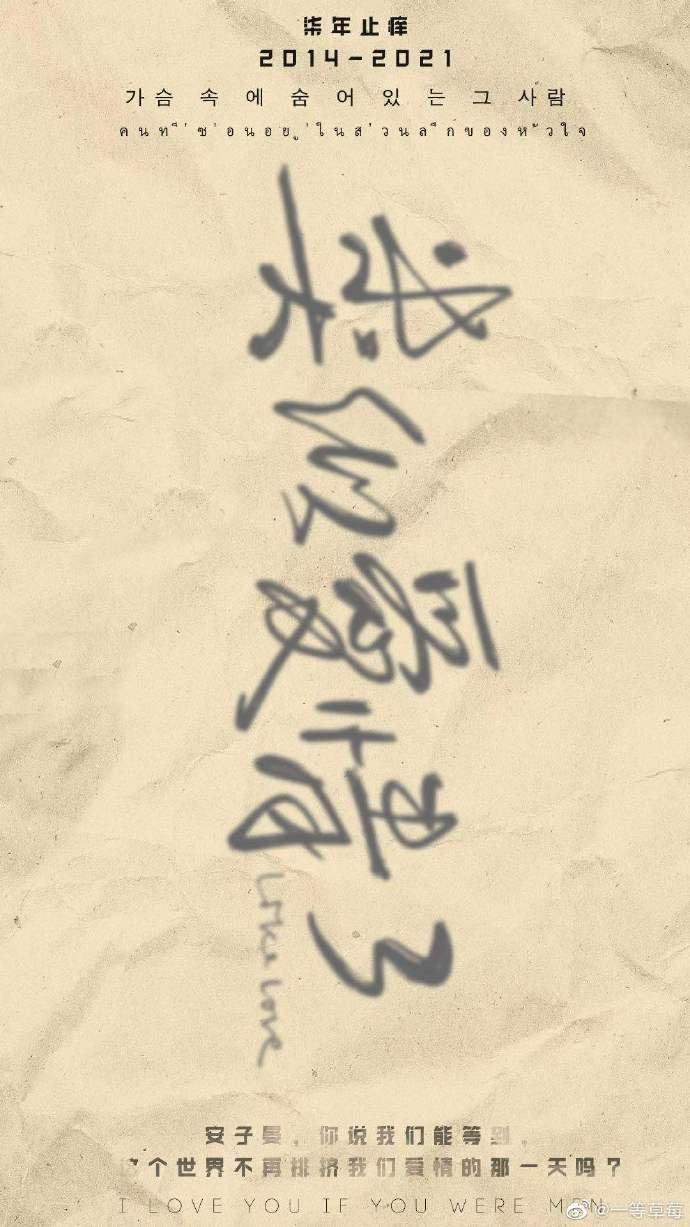 柒年止痒
2014-2021
가슴 속에 숨어있는 그 사람
คนที่ซ่อนอยู่ในส่วนลึกของหัวใจ
类似愛情3
Like Love
安子晏，你说我们能等到，
这个世界不再排挤我们爱情的那一天吗？
I LOVE YOU IF YOU WERE MAN
@一等草莓